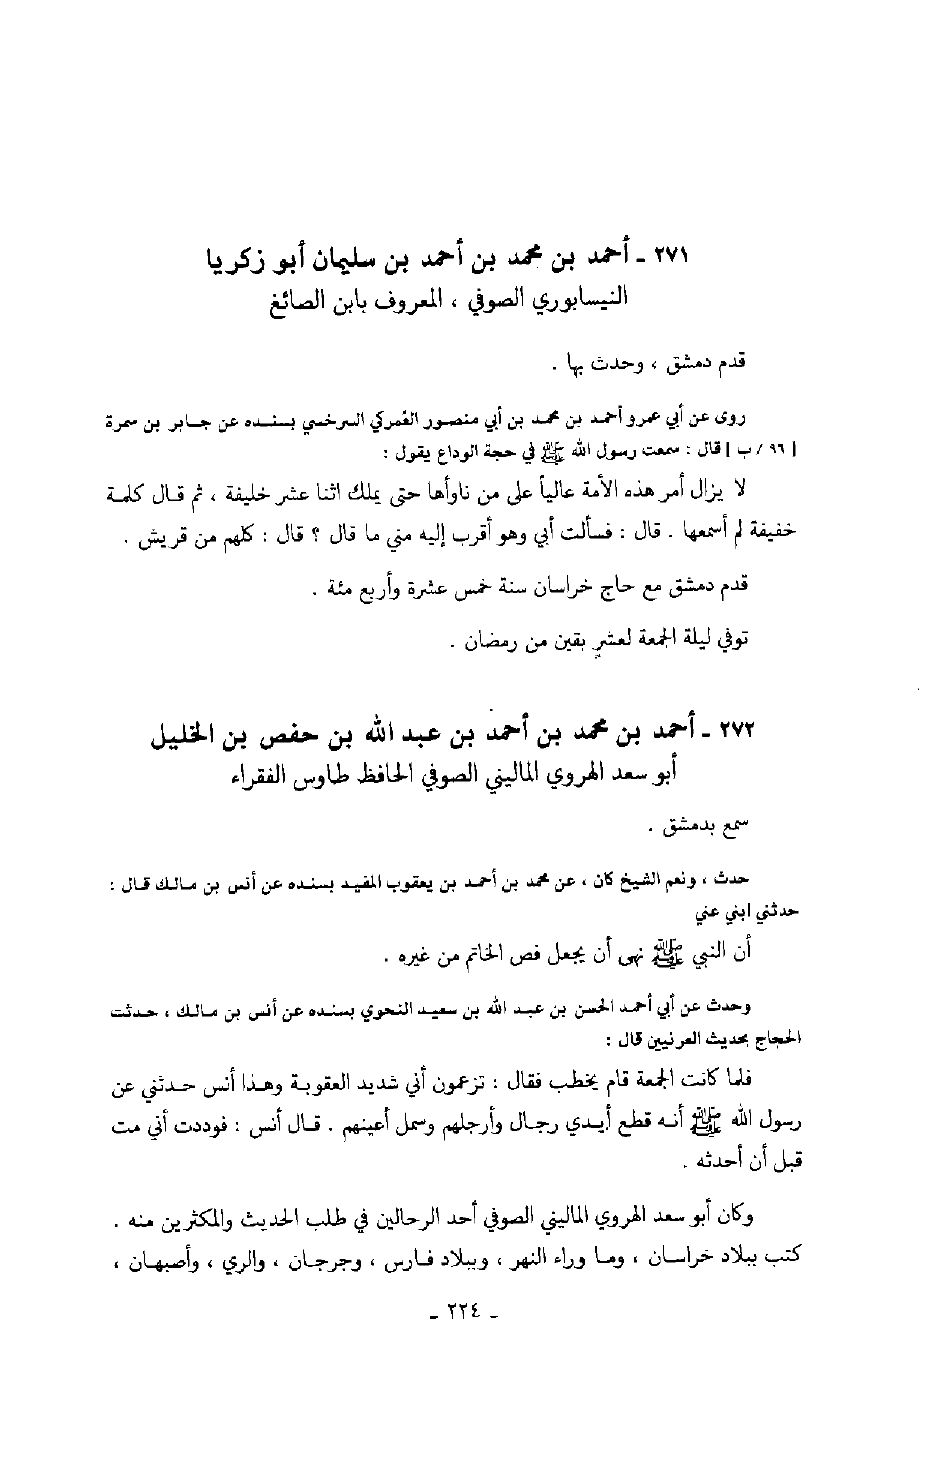 ٢٧١ ـ أحمد بن محمد بن أحمد بن سليمان أبو زكريا
النيسابوري الصوفي ، المعروف بابن الصائغ
قدم دمشق ، وحدث بها .
روى عن أبي عمرو أحمد بن محمد بن أبي منصور العُمركي السرخسي بسنده عن جابر بن سمرة
[ ٩٦ / ب ] قال : سمعت رسول الله ﷺ في حجة الوداع يقول :
لا يزال أمر هذه الأمة عالياً على من ناوأها حتى يملك اثنا عشر خليفة ، ثم قال كلمة
خفيفة لم أسمعها . قال : فسألت أبي وهو أقرب إليه مني ما قال ؟ قال : كلهم من قريش .
قدم دمشق مع حاج خراسان سنة خمس عشرة وأربع مئة .
توفي ليلة الجمعة لعشرٍ بقين من رمضان .
٢٧٢ ـ أحمد بن محمد بن أحمد بن عبد الله بن حفص بن الخليل
أبو سعد الهروي الماليني الصوفي الحافظ طاوس الفقراء
سمع بدمشق .
حدث ، ونعم الشيخ كان ، عن محمد بن أحمد بن يعقوب المفيد بسنده عن أنس بن مالك قال :
حدثني ابني عني
أن النبي ﷺ نهى أن يجعل فص الخاتم من غيره .
وحدث عن أبي أحمد الحسن بن عبد الله بن سعيد النحوي بسنده عن أنس بن مالك ، حدثت
الحجاج بحديث العرنيين قال :
فلما كانت الجمعة قام يخطب فقال : تزعمون أني شديد العقوبة وهذا أنس حدثني عن
رسول الله ﷺ أنه قطع أيدي رجال وأرجلهم وسمل أعينهم . قال أنس : فوددت أني مت
قبل أن أحدثه .
وكان أبو سعد الهروي الماليني الصوفي أحد الرحالين في طلب الحديث والمكثرين منه .
كتب ببلاد خراسان ، وما وراء النهر ، وببلاد فارس ، وجرجان ، والري ، وأصبهان ،
ـ ٢٢٤ ـ